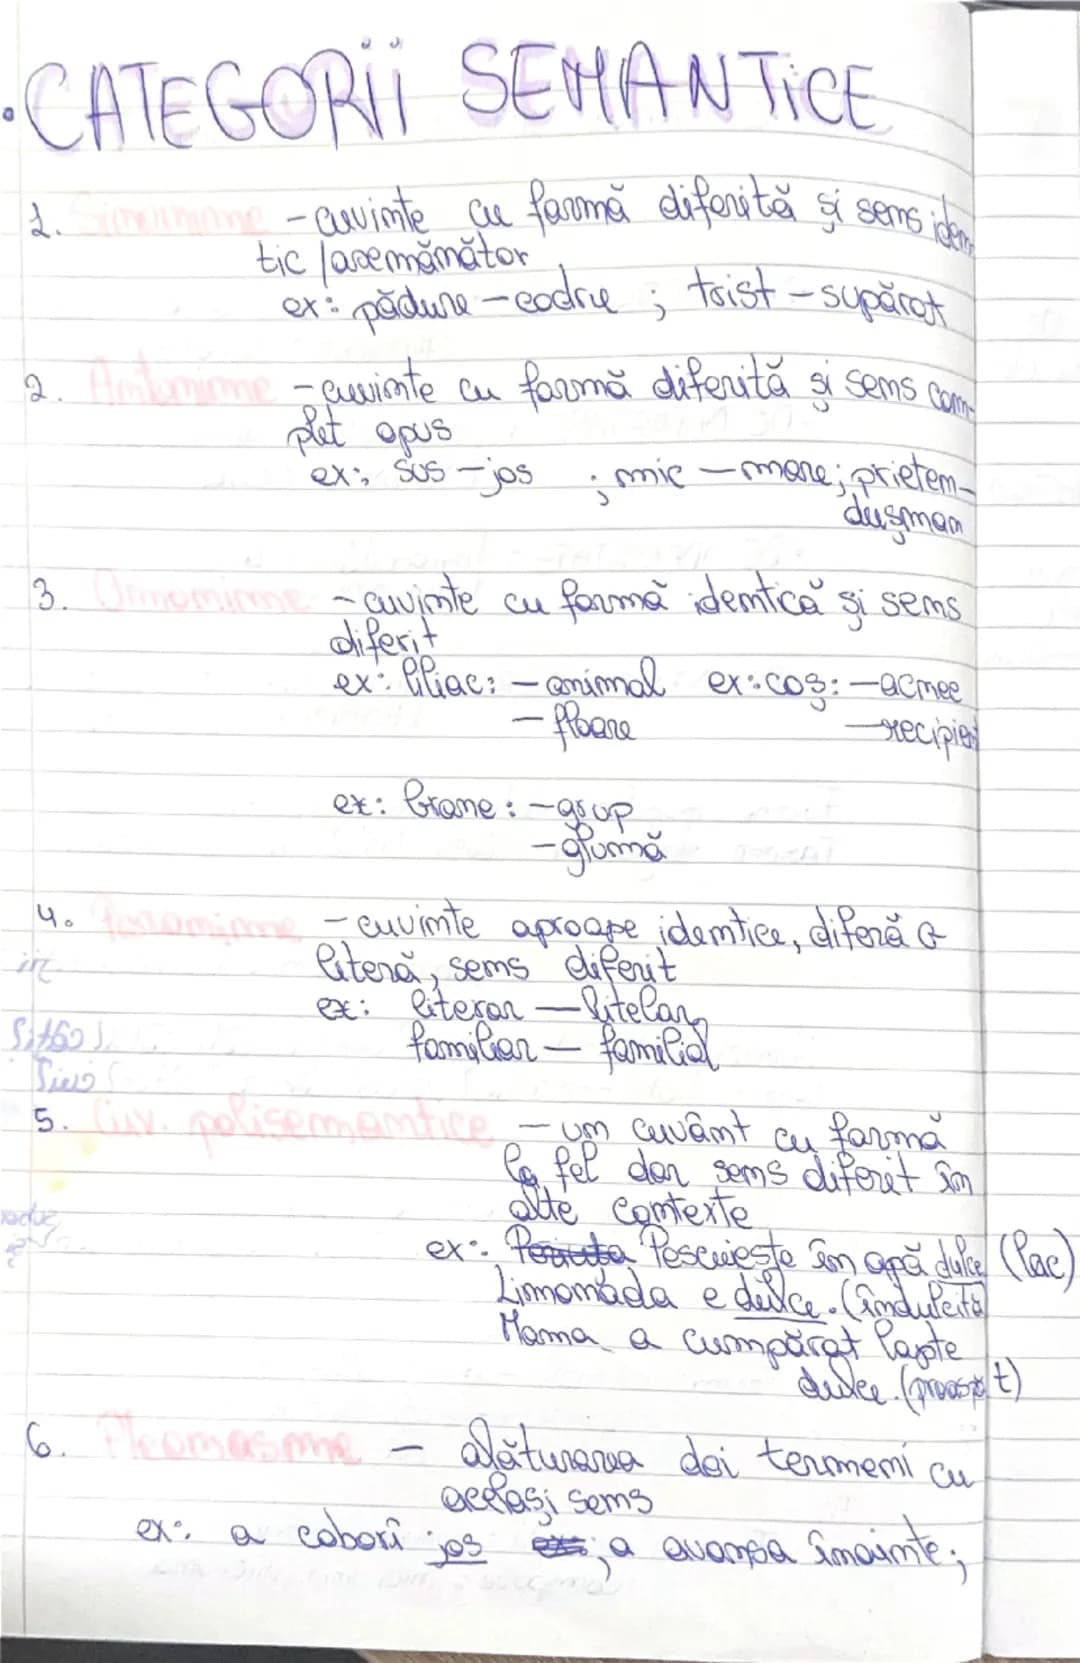 • CATEGORII SEMANTICE
1. Sinonime - cuvinte cu formă diferită și sens iden
tic / asemănător
ex: pădure - codru ; trist - supărat
2. Antonime - cuvinte cu formă diferită și sens com-
plet opus
ex: sus - jos ; mic - mare; prieten-
dușman
3. Omonime - cuvinte cu formă identică și sens
diferit
ex: liliac: - animal ex: coș: - acnee
- floare - recipient
ex: Brane: - grup
- glumă
4. Paronime - cuvinte aproape identice, diferă o
literă, sens diferit
ex: literar - litelar
familiar - familial
5. Cuv. polisemantice - un cuvânt cu formă
la fel dar sens diferit în
alte contexte
ex: Pescuiește în apă dulce (lac)
Limonada e dulce. (îndulcită)
Mama a cumpărat lapte
dulce. (proaspăt)
6. Pleonasme - alăturarea doi termeni cu
același sens
ex: a coborî jos ; a avansa înainte;